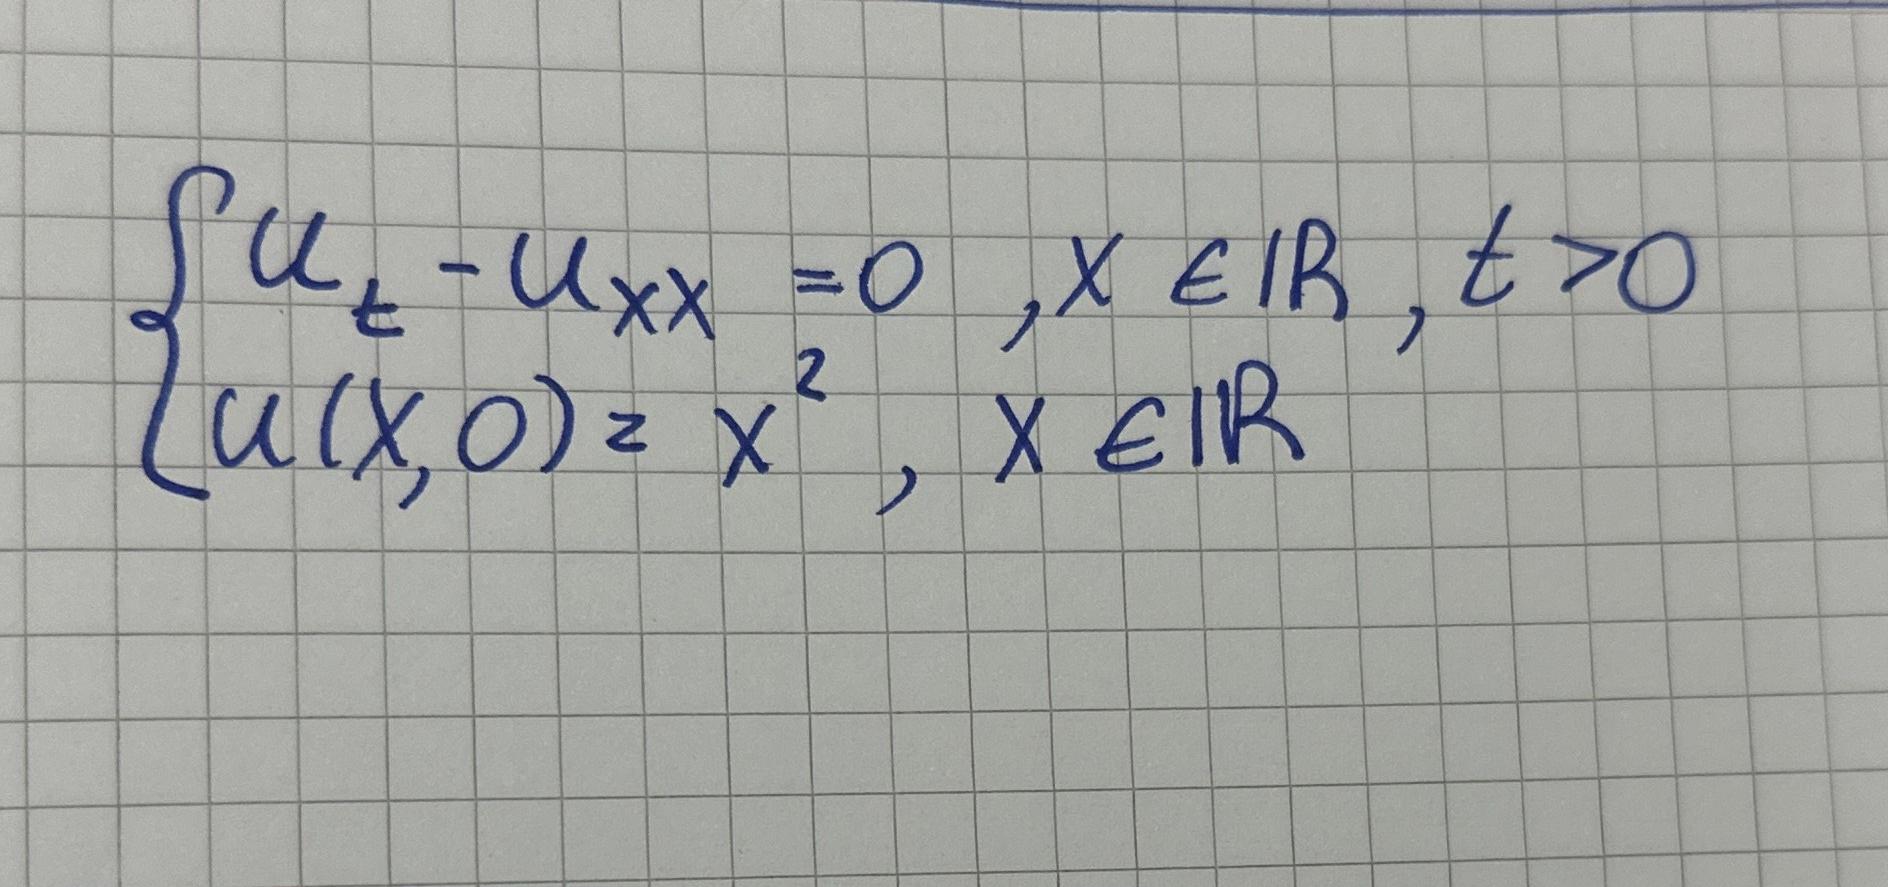 { u_t - u_xx = 0 , x ∈ ℝ , t > 0
u(x,0) = x² , x ∈ ℝ